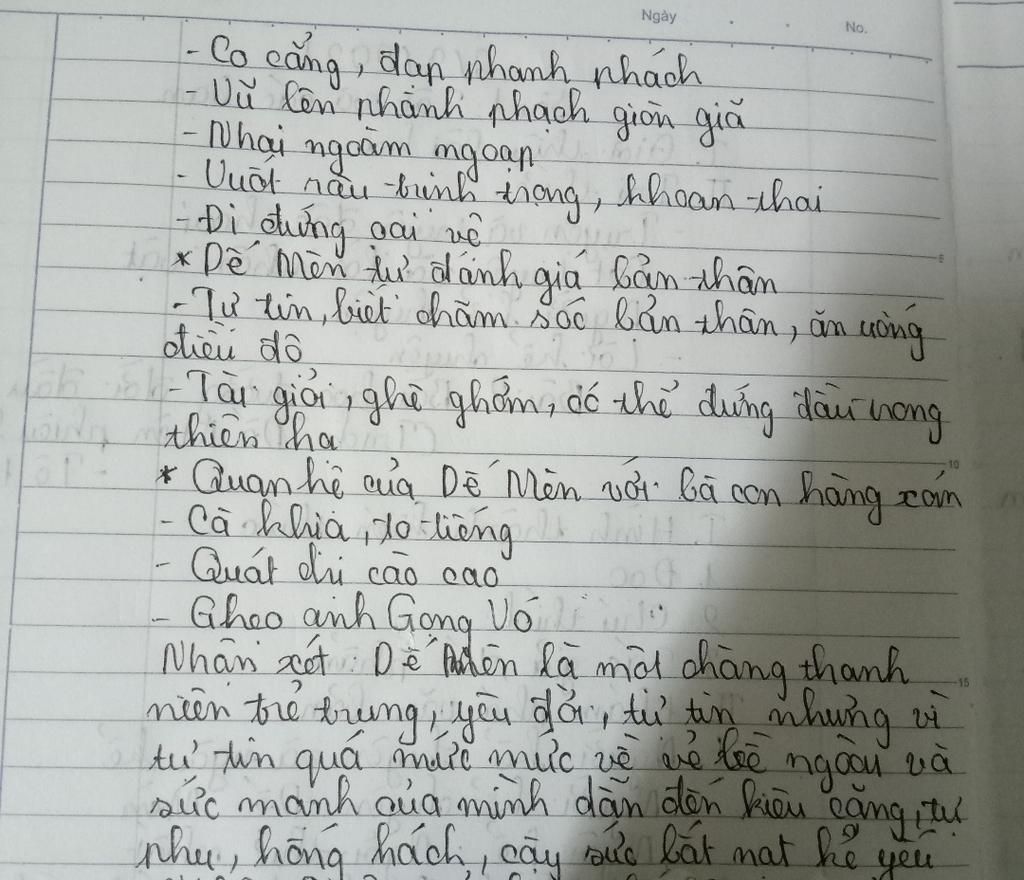 Ngày
No.
- Co cẳng, đạp phanh phách
- Vũ lên phành phạch giòn giã
- Nhai ngoàm ngoạp
- Vuốt râu trịnh trọng, khoan thai
- Đi đứng oai vệ
* Dế Mèn tự đánh giá bản thân
- Tự tin, biết chăm sóc bản thân, ăn uống
điều độ
- Tài giỏi, ghê ghớm, có thể đứng đầu trong
thiên hạ
* Quan hệ của Dế Mèn với bà con hàng xóm
- Cà khịa, to tiếng
- Quát chị cào cào
- Ghẹo anh Gọng Vó
Nhận xét: Dế Mèn là một chàng thanh
niên trẻ trung, yêu đời, tự tin nhưng vì
tự tin quá mức mức về vẻ bề ngoài và
sức mạnh của mình dẫn đến kiêu căng, tự
phụ, hống hách, cậy sức bắt nạt kẻ yếu